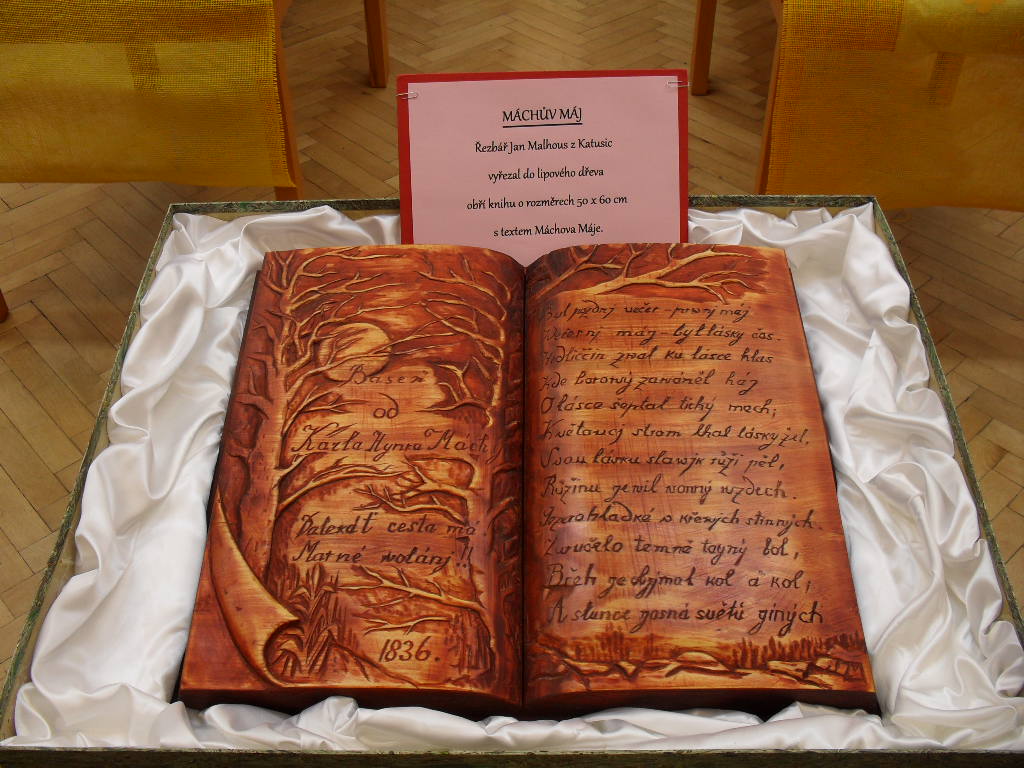 MÁCHŮV MÁJ
Řezbář Jan Malhous z Katusic
vyřezal do lipového dřeva
obří knihu o rozměrech 50 x 60 cm
s textem Máchova Máje.
Básen
od
Karla Hynra Mách
Daleká ť cesta má
Marné wolánj!!
1836.
Byl pozdnj večer – prwnj máj
Wečernj máj – byl lásky čas.
Hrdliččin zwal ku lásce hlas
Kde borowý zawáněl háj
O lásce šeptal tichý mech;
Kwětaucj strom lhal lásky žel,
Swau lásku slawjk růži pěl,
Růžinu gewil wonný wzdech.
Gezero hladké w křowjch stinných
Zwučelo temně tagný bol,
Břeh ge obgjmal kol a kol;
A slunce gasná swětů giných